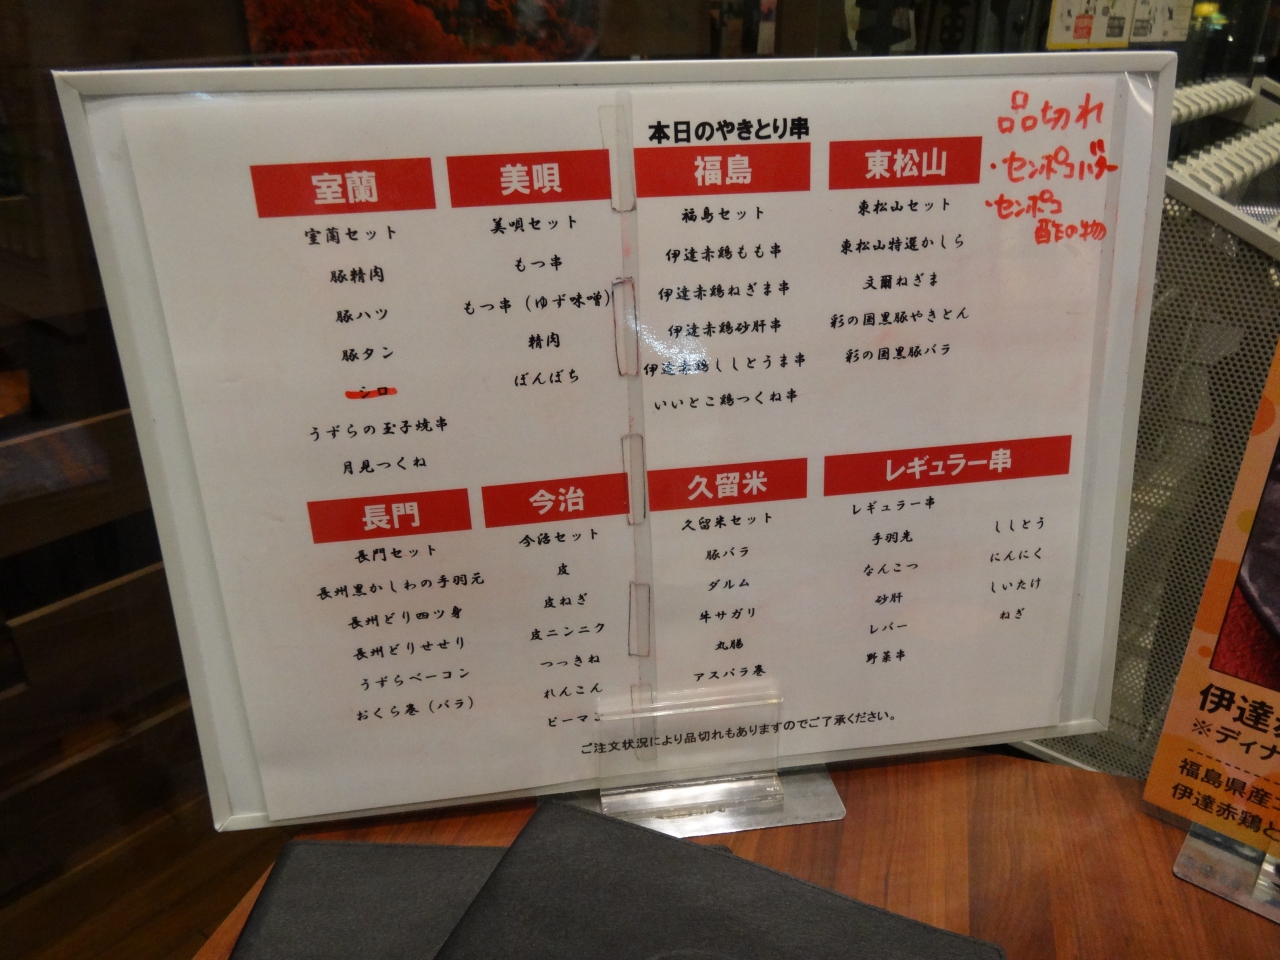 本日のやきとり串
室蘭
室蘭セット
豚精肉
豚ハツ
豚タン
シロ
うずらの玉子焼串
月見つくね
美唄
美唄セット
もつ串
もつ串（ゆず味噌）
精肉
ぼんぼち
福島
福島セット
伊達赤鶏もも串
伊達赤鶏ねぎま串
伊達赤鶏砂肝串
伊達赤鶏ししとうま串
いいとこ鶏つくね串
東松山
東松山セット
東松山特選かしら
文爾ねぎま
彩の国黒豚やきとん
彩の国黒豚バラ
品切れ
・センポコバター
・センポコ
酢の物
長門
長門セット
長州黒かしわの手羽元
長州どり四ツ身
長州どりせせり
うずらベーコン
おくら巻（バラ）
今治
今治セット
皮
皮ねぎ
皮ニンニク
つっきね
れんこん
ピーマン
久留米
久留米セット
豚バラ
ダルム
牛サガリ
丸腸
アスパラ巻
レギュラー串
レギュラー串
手羽先
なんこつ
砂肝
レバー
野菜串
ししとう
にんにく
しいたけ
ねぎ
ご注文状況により品切れもありますのでご了承ください。
伊達
※ディナ
福島県産
伊達赤鶏と